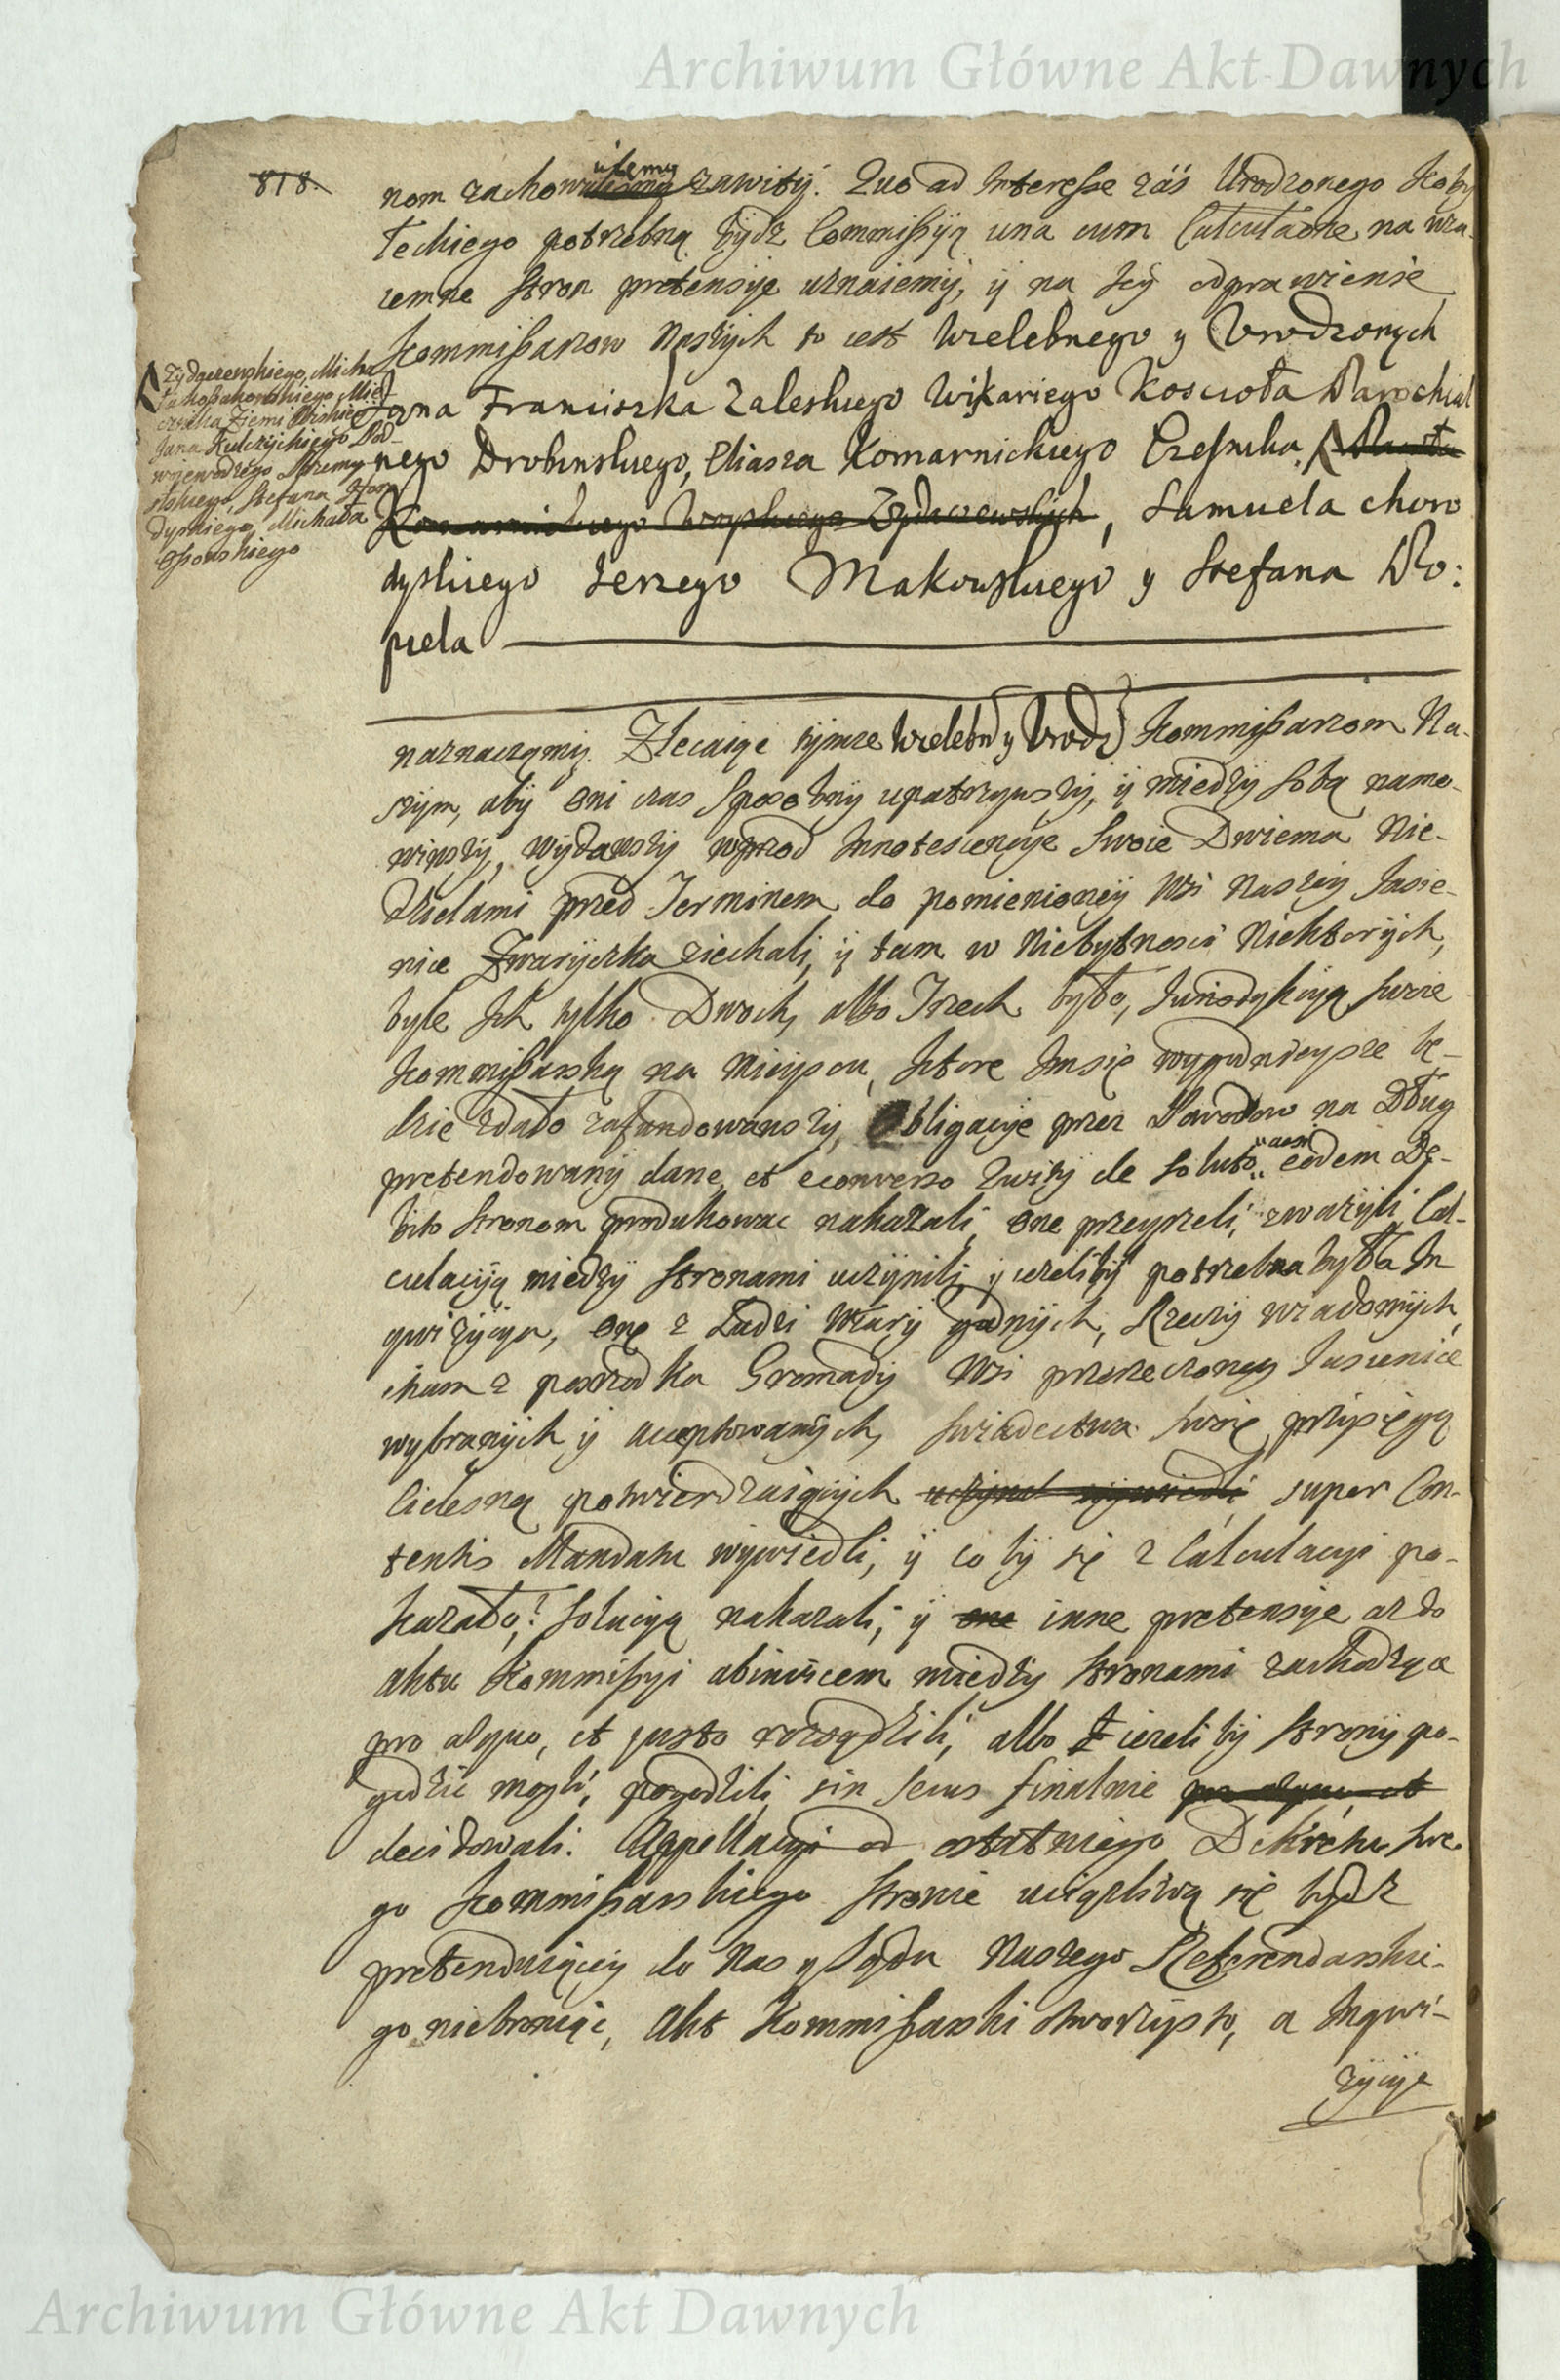 Archiwum Główne Akt Dawnych
818.
nom zachowuiemy zawity. Quo ad Interesse zás Urodzonego Koby
łeckiego potrzebną bydz Commissyą una cum Calculatione na wza-
iemne stron pretensye uznaiemy, y na Iey odprawienie
Kommissarzow Naszych to iest Wielebnego y Urodzonych
Jana Franciszka Zaleskiego Wikariego Koscioła Parochial
nego Drohinskiego, Eliasza Komarnickiego Czesnika
Komarnickiego Woyskiego Zydaczewskich, Samuela Choro
dyskiego Jerzego Makowskiego y Stefana Po:
piela
Zydaczewskiego, Micha
ła
Ziemi
Jana Kulczyckiego Pod-
woiewodzego Przemy-
skiego, Stefana Hor
dynskiego, Michała
Ossowskiego
naznaczamy. Zlecaiąc tymze Wielebn y Urodz Kommissarzom Na-
szym, aby oni czas sposobny upatrzywszy, y miedzy sobą namo-
wiwszy, wydawszy wprzod Innotescencye swoie Dwiema Nie-
dzielami przed Terminem do pomienioney Wsi Naszey Jasie-
nice Zwaryczka ziechali, y tam w Niebytnosci Niektorych,
byle Ich tylko Dwoch, albo Trzech było, Iurisdykcyą swoie
Kommissarską na Mieyscu, ktore Im się wygodnieysze bę-
dzie zdało zafundowawszy, Obligacye przez Powodow na Dług
pretendowany dane, et econverso Kwity de soluto eodem De-
bito stronom produkowac nakazali, one przeyrzeli, zwazyli, Cal-
culacyą miedzy stronami uczynili, y iezeliby potrzebna była In
qwizycya, onę z Ludzi Wiary godnych, Rzeczy wiadomych,
ikum z posrzodka Gromady Wsi przerzeczoney Jasienice
wybranych y acceptowanych, swiadectwa swoie przysięgą
Cielesną potwierdzaiących uczynili wywiedli super Con-
tentis Mandatu wywiedli, y co by się z Calculacyi po-
kazało, solucyą nakazali, y one inne pretensye az do
aktu Kommissyi abinvicem miedzy stronami zachodzące
pro aequo, et justo rozsądzili, albo iezeliby strony po-
godzic mogli, pogodzili, sin secus finalnie pro aequo et
decidowali. Appellacyi od ostatniego Dekretu swe
go Kommissarskiego stronie uciązliwą się bydz
pretenduiącey do Nas y Sądu Naszego Referendarskie-
go niebroniąc, Akt Kommissarski otworzysto, a Inqwi-
zycye
Archiwum Główne Akt Dawnych